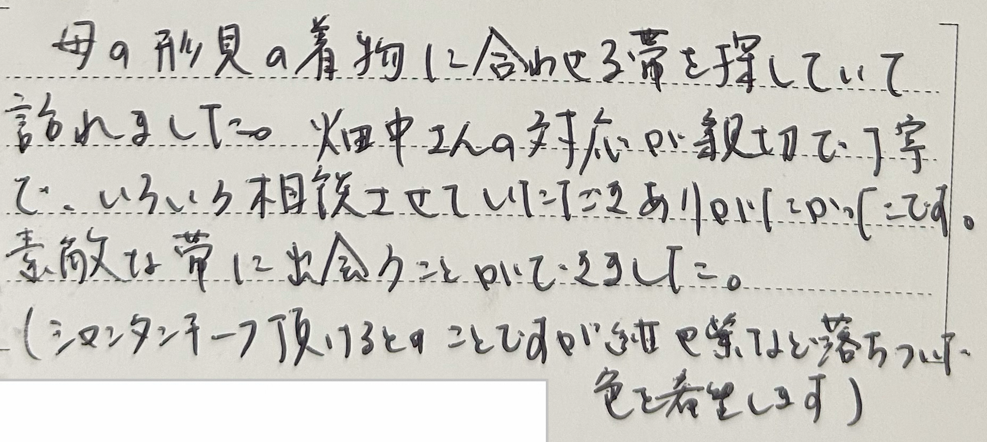 母の形見の着物に合わせる帯を探していて
訪れました。畑中さんの対応が親切で丁寧
で、いろいろ相談させていただきありがたかったです。
素敵な帯に出会うことができました。
(シルクンタンチーフ頂けるとのことですが紺や紫など落ちついた
色を希望します)